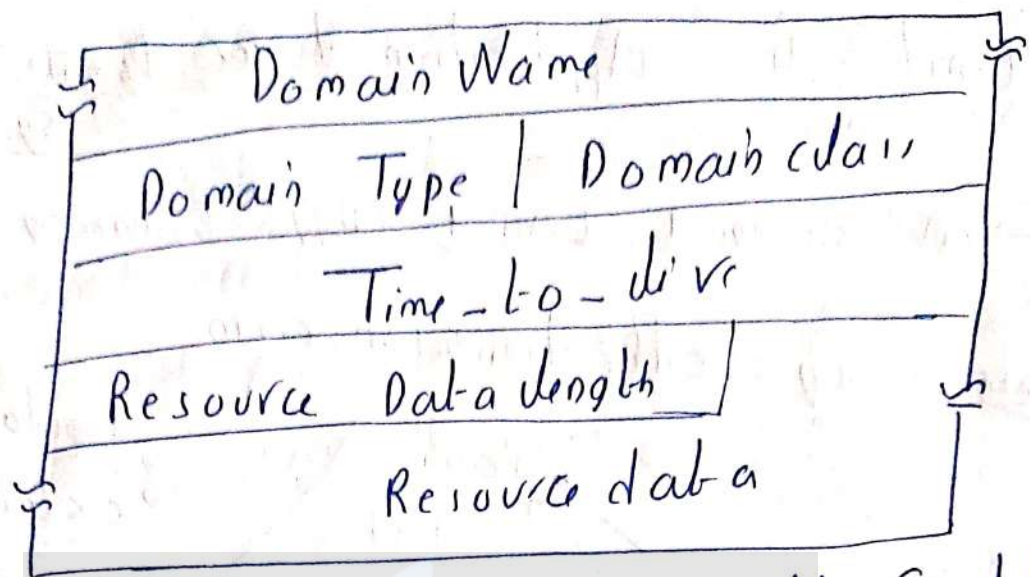 Domain Name
Domain Type | Domain class
Time-to-live
Resource Data length
Resource data